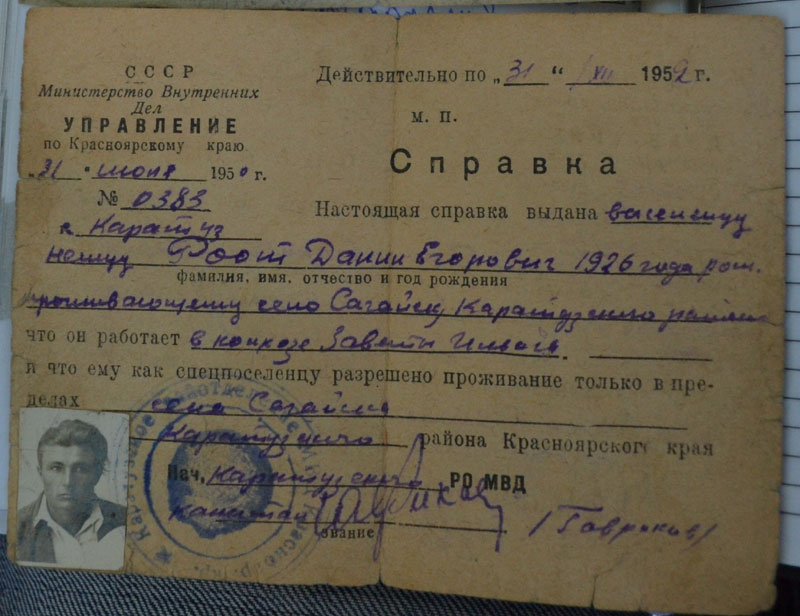 СССР
Министерство Внутренних
Дел
УПРАВЛЕНИЕ
по Красноярскому краю
„31“ июля 1950 г.
№ 0383
с Каратуз
Действительно по „31“ XII 1952 г.
м. п.
Справка
Настоящая справка выдана выселенцу
немцу Роот Данил Егорович 1926 года рож.
фамилия, имя, отчество и год рождения
проживающему село Сагайск, Каратузского района
что он работает в колхозе Заветы Ильича.
и что ему как спецпоселенцу разрешено проживание только в пре-
делах села Сагайска
Каратузского района Красноярского края
Нач. Каратузского РО МВД
капитан
звание